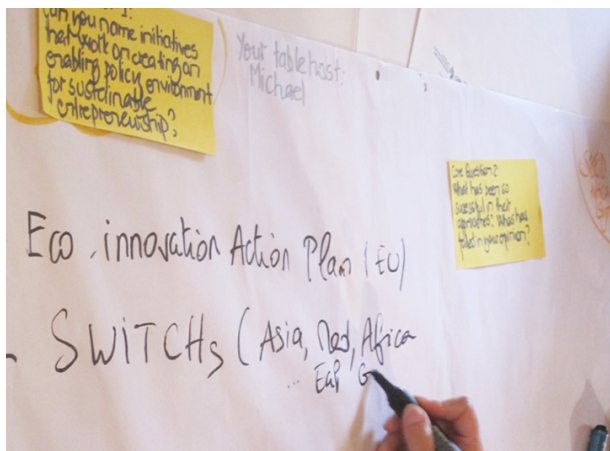 can you name initiatives
that work on creating an
enabling policy environment
for sustainable
entrepreneurship?
Your table host:
Michael
Core Question 2
What has been so
sucessful in their
approaches? What has
failed in your opinion?
Eco.innovation Action Plan (EU)
- SWITCHs (Asia, Med, Africa
... EaP G